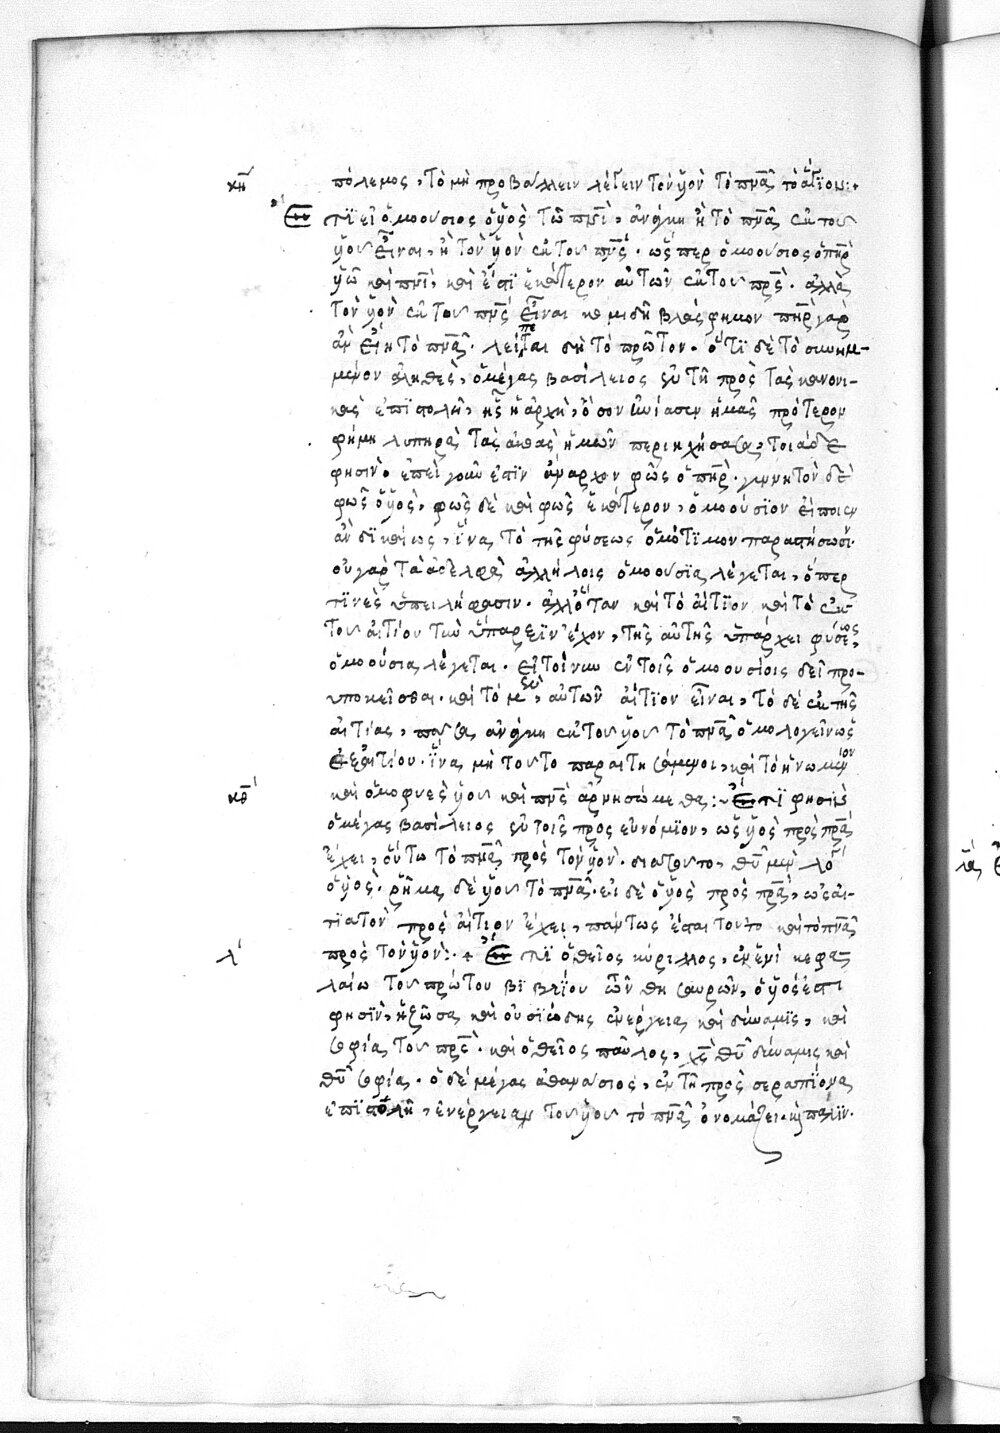 κη πόλεμος, τὸ μὴ προβάλλειν λέγειν τὸν ὑὸν τὸ πνᾶ τὸ ἅγιον:+
Ἔτι εἰ ὁμοούσιος ὁ ὑὸς τῶ πνϊ, ἀνάγκη ἢ τὸ πνᾶ ἐκ του
ὑοῦ εἶναι, ἢ τὸν ὑὸν ἐκ του πνς. ὥςπερ ὁμοούσιος ὁ πηρ
ὑῶ καὶ πνϊ, καὶ ἔστιν ἑκάτερον αὐτῶν ἐκ του πρς. ἀλλὰ
τὸν ὑὸν ἐκ του πνς εἶναι κομιδῆ βλάσφημον πηρ γὰρ
ἂν εἴη τὸ πνᾶ. λείπεται δὴ τὸ πρῶτον. ὅτι δὲ τὸ συνημ-
μένον ἀληθὲς, ὁ μέγας βασίλειος ἐν τῆ πρὸς τὰς κανονι-
κὰς ἐπιστολῆ, ἧς ἡ ἀρχὴ, ὅσον ἠνίασεν ἡμᾶς πρότερον
φήμη λυπηρὰ τὰς ἀκοὰς ἡμῶν περιηχήσασα, τοιάδε
φησιν· ἐπεὶ γοῦν ἐστὶν ἄναρχον φῶς ὁ πηρ. γεννητὸν δὲ
φῶς ὁ ὑὸς, φῶς δὲ καὶ φῶς ἑκάτερον, ὁμοούσϊον εἴποιεν
ἂν δικαίως, ἵνα τὸ τῆς φύσεως ὁμότιμον παραστήσωσϊν.
οὐ γὰρ τὰ ἀδελφὰ ἀλλήλοις ὁμοούσϊα λέγεται, ὅπερ
τινὲς ὑπειλήφασιν. ἀλλ' ὅταν καὶ τὸ αἴτϊον καὶ τὸ ἐκ
του αἰτίου τὴν ὕπαρξϊν ἔχον, τῆς αὐτῆς ὑπάρχει φύσεως,
ὁμοούσια λέγεται. εἰ τοίνυν ἐν τοῖς ὁμοουσίοις δεῖ προ-
υποκεῖσθαι. καὶ τὸ μὲν, αὐτῶν αἴτϊον εἶναι, τὸ δὲ ἐκ τῆς
αἰτίας, πᾶσα ἀνάγκη ἐκ του ὑοῦ τὸ πνᾶ ὁμολογεῖν ὡς
ἐξ αἰτίου. ἵνα μὴ τουτο παραιτησάμενοι, καὶ τὸ ἡνωμένον
κθ καὶ ὁμοφυὲς ὑοῦ καὶ πνς ἀρνησώμεθα:~ Ἔτι φησὶν
ὁ μέγας βασίλειος ἐν τοῖς πρὸς εὐνόμϊον, ὡς ὑὸς πρὸς πρᾶ
ἔχει, οὕτω τὸ πνᾶ πρὸς τὸν ὑὸν. διατουτο, θῦ μὲν λο
ὁ ὑὸς. ῥῆμα δὲ ὑοῦ τὸ πνᾶ. εἰ δὲ ὁ ὑὸς πρὸς πρᾶ, ὡς αἰ-
τιατὸν πρὸς αἴτιον ἔχει, πάντως ἔσται τουτο καὶ τὸ πνᾶ
λ πρὸς τὸν ὑὸν:+ Ἔτι ὁ θεῖος κύριλλος, ἐν ἑνὶ κεφα-
λαίω του πρώτου βιβλίου τῶν θησαυρῶν, ὁ ὑός ἐστι
φησὶν, ἡ ζῶσα καὶ οὐσϊώδης ἐνέργεια καὶ δύναμϊς, καὶ
σοφία του πρς. καὶ ὁ θεῖος παῦλος, χς θῦ δύναμις καὶ
θῦ σοφία. ὁ δὲ μέγας ἀθανάσιος, ἐν τῆ πρὸς σεραπίονα
ἐπϊστολῆ, ἐνέργειαν του ὑοῦ τὸ πνᾶ ὀνομάζει. καὶ πάλϊν.